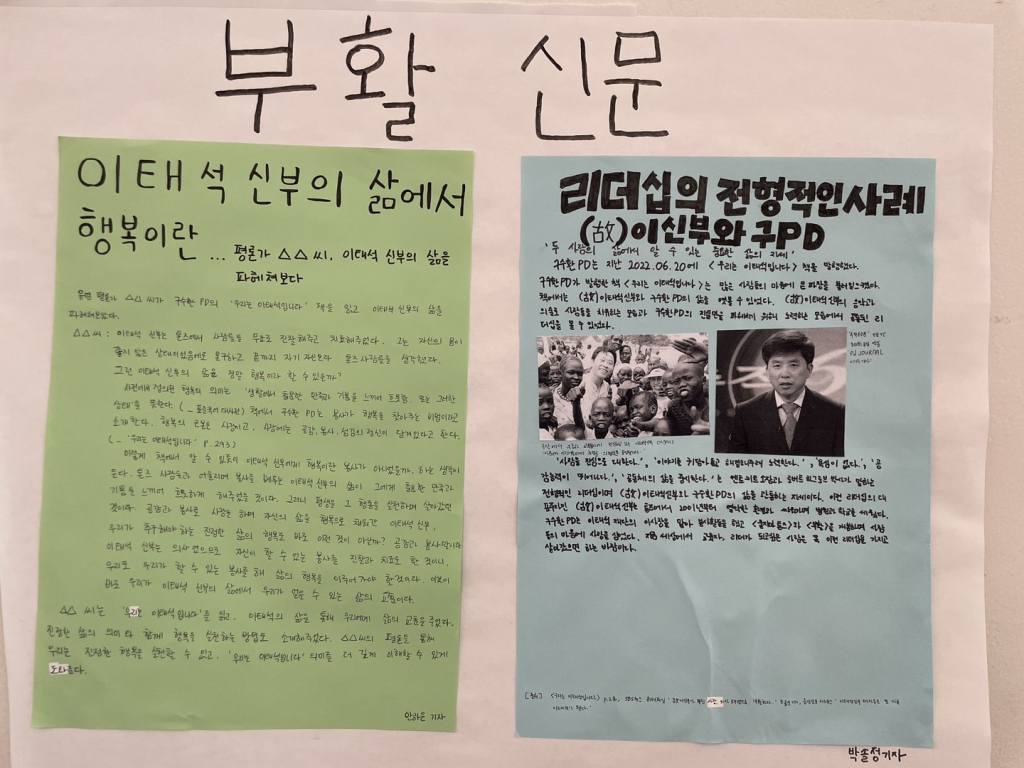 부활 신문
이태석 신부의 삶에서
행복이란 ... 평론가 △△씨, 이태석 신부의 삶을
파헤쳐보다
유명 평론가 △△ 씨가 구수환 PD의 '우리는 이태석입니다' 책을 읽고 이태석 신부의 삶을
파헤쳐보았다.
△△ 씨 : 이태석 신부는 톤즈에서 사람들을 무료로 진찰해주고 치료해주었다. 그는 자신의 몸이
좋지 않은 상태이었음에도 불구하고 끝까지 자기 자신보다 톤즈사람들을 생각했다.
그런 이태석 신부의 삶을 정말 행복이라 할 수 있을까?
사전에서 정의된 행복의 의미는 '생활에서 충분한 만족과 기쁨을 느끼어 흐뭇함. 또는 그러한
상태'를 뜻한다. ( _ 표준국어대사전) 책에서 구수환 PD는 봉사가 행복을 찾아주는 비법이라고
소개한다. 행복의 근본은 사랑이고, 사랑에는 공감, 봉사, 섬김의 정신이 담겨있다고 한다.
( _ '우리는 이태석입니다' P.293)
이렇게 책에서 알 수 있듯이 이태석 신부에게 행복이란 봉사가 아니었을까, 하는 생각이
든다. 톤즈 사람들과 어울리며 봉사를 해주는 이태석 신부의 삶이 그에게 충분한 만족과
기쁨을 느끼어 흐뭇하게 해주었을 것이다. 그러니 평생을 그 행동을 실천하며 살아갔던
것이다. 공감과 봉사로 사랑을 하며 자신의 삶을 행복으로 채워간 이태석 신부,
우리가 추구해야하는 진정한 삶의 행복은 바로 이런 것이 아닐까? 공감과 봉사 말이다
이태석 신부는 의사였으므로 자신이 할 수 있는 봉사를 진찰과 치료로 한 것이니,
우리도 우리가 할 수 있는 봉사를 해 삶의 행복을 이루어가야 할 것이다. 이것이
바로 우리가 이태석 신부의 삶에서 우리가 얻을 수 있는 삶의 교훈이다.
△△ 씨는 '우리는 이태석입니다'을 읽고, 이태석의 삶을 통해 우리에게 삶의 교훈을 주었다.
진정한 삶의 의미와 함께 행복을 실천하는 방법도 소개해주었다. △△씨의 평론을 통해
우리는 진정한 행복을 실천할 수 있고, '우리는 이태석입니다' 의미를 더 깊게 이해할 수 있게
도와준다.
안하은 기자
리더십의 전형적인사례
(故)이신부와 구PD
'두 사람의 삶에서 알 수 있는 중요한 삶의 자세'
구수환 PD는 지난 2022.06.20에 <우리는 이태석입니다> 책을 발행했다.
구수환 PD가 발행한 책 <우리는 이태석입니다>는 많은 사람들의 마음에 큰 파장을 불러일으켰다.
책에서는 (故)이태석신부와 구수환 PD의 삶을 엿볼 수 있었다. (故)이태석신부의 음악과
의술로 사람들을 치유하는 모습과 구수환 PD의 진실만을 파헤치기 위하여 노력하는 모습에서 공통된 리
더십을 볼 수 있었다.
PD JOURNAL
'사람을 진심으로 대한다.', '이야기를 귀담아듣고 해결해주려 노력한다.', '욕심이 없다.', '공
감능력이 뛰어나다.', '공동체의 삶을 중시한다.'는
전형적인 리더십이며 (故)이태석신부와 구수환 PD의 삶을 관통하는 자세이다. 이런 리더십의 대
표주자인 (故)이태석 신부는 톤즈에서 2001년부터 열악한 환경과 싸우며 병원과 학교를 세웠다.
구수환 PD는 이태석 재단의 이사장을 맡아 봉사활동을 하고 <울지마 톤즈>와 <부활>을 제작하며 사람
들의 마음에 사랑을 심었다. 세상에서 교훈자, 리더가 되고싶은 사람은 꼭 이런 리더십을 가지고
살아갔으면 하는 바람이다.
[출처] <우리는 이태석입니다>
박솔성기자